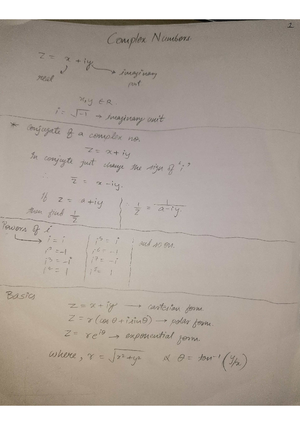 2
Complex Numbers
z = x + iy
real imaginary part
x, y ∈ R
i = √-1 → imaginary unit
* Conjugate of a complex no.
z = x + iy
In conjugate just change the sign of "i"
∴ z̅ = x - iy
If z = a + iy } ∴ 1/z̅ = 1/(a - iy)
then find 1/z̅
Powers of i
i = i i⁵ = i and so on.
i² = -1 i⁶ = -1
i³ = -i i⁷ = -i
i⁴ = 1 i⁸ = 1
Basics
z = x + iy → cartesian form
z = r(cos θ + i sin θ) → polar form
z = re^{iθ} → exponential form
where, r = √x² + y² & θ = tan⁻¹ (y/x)